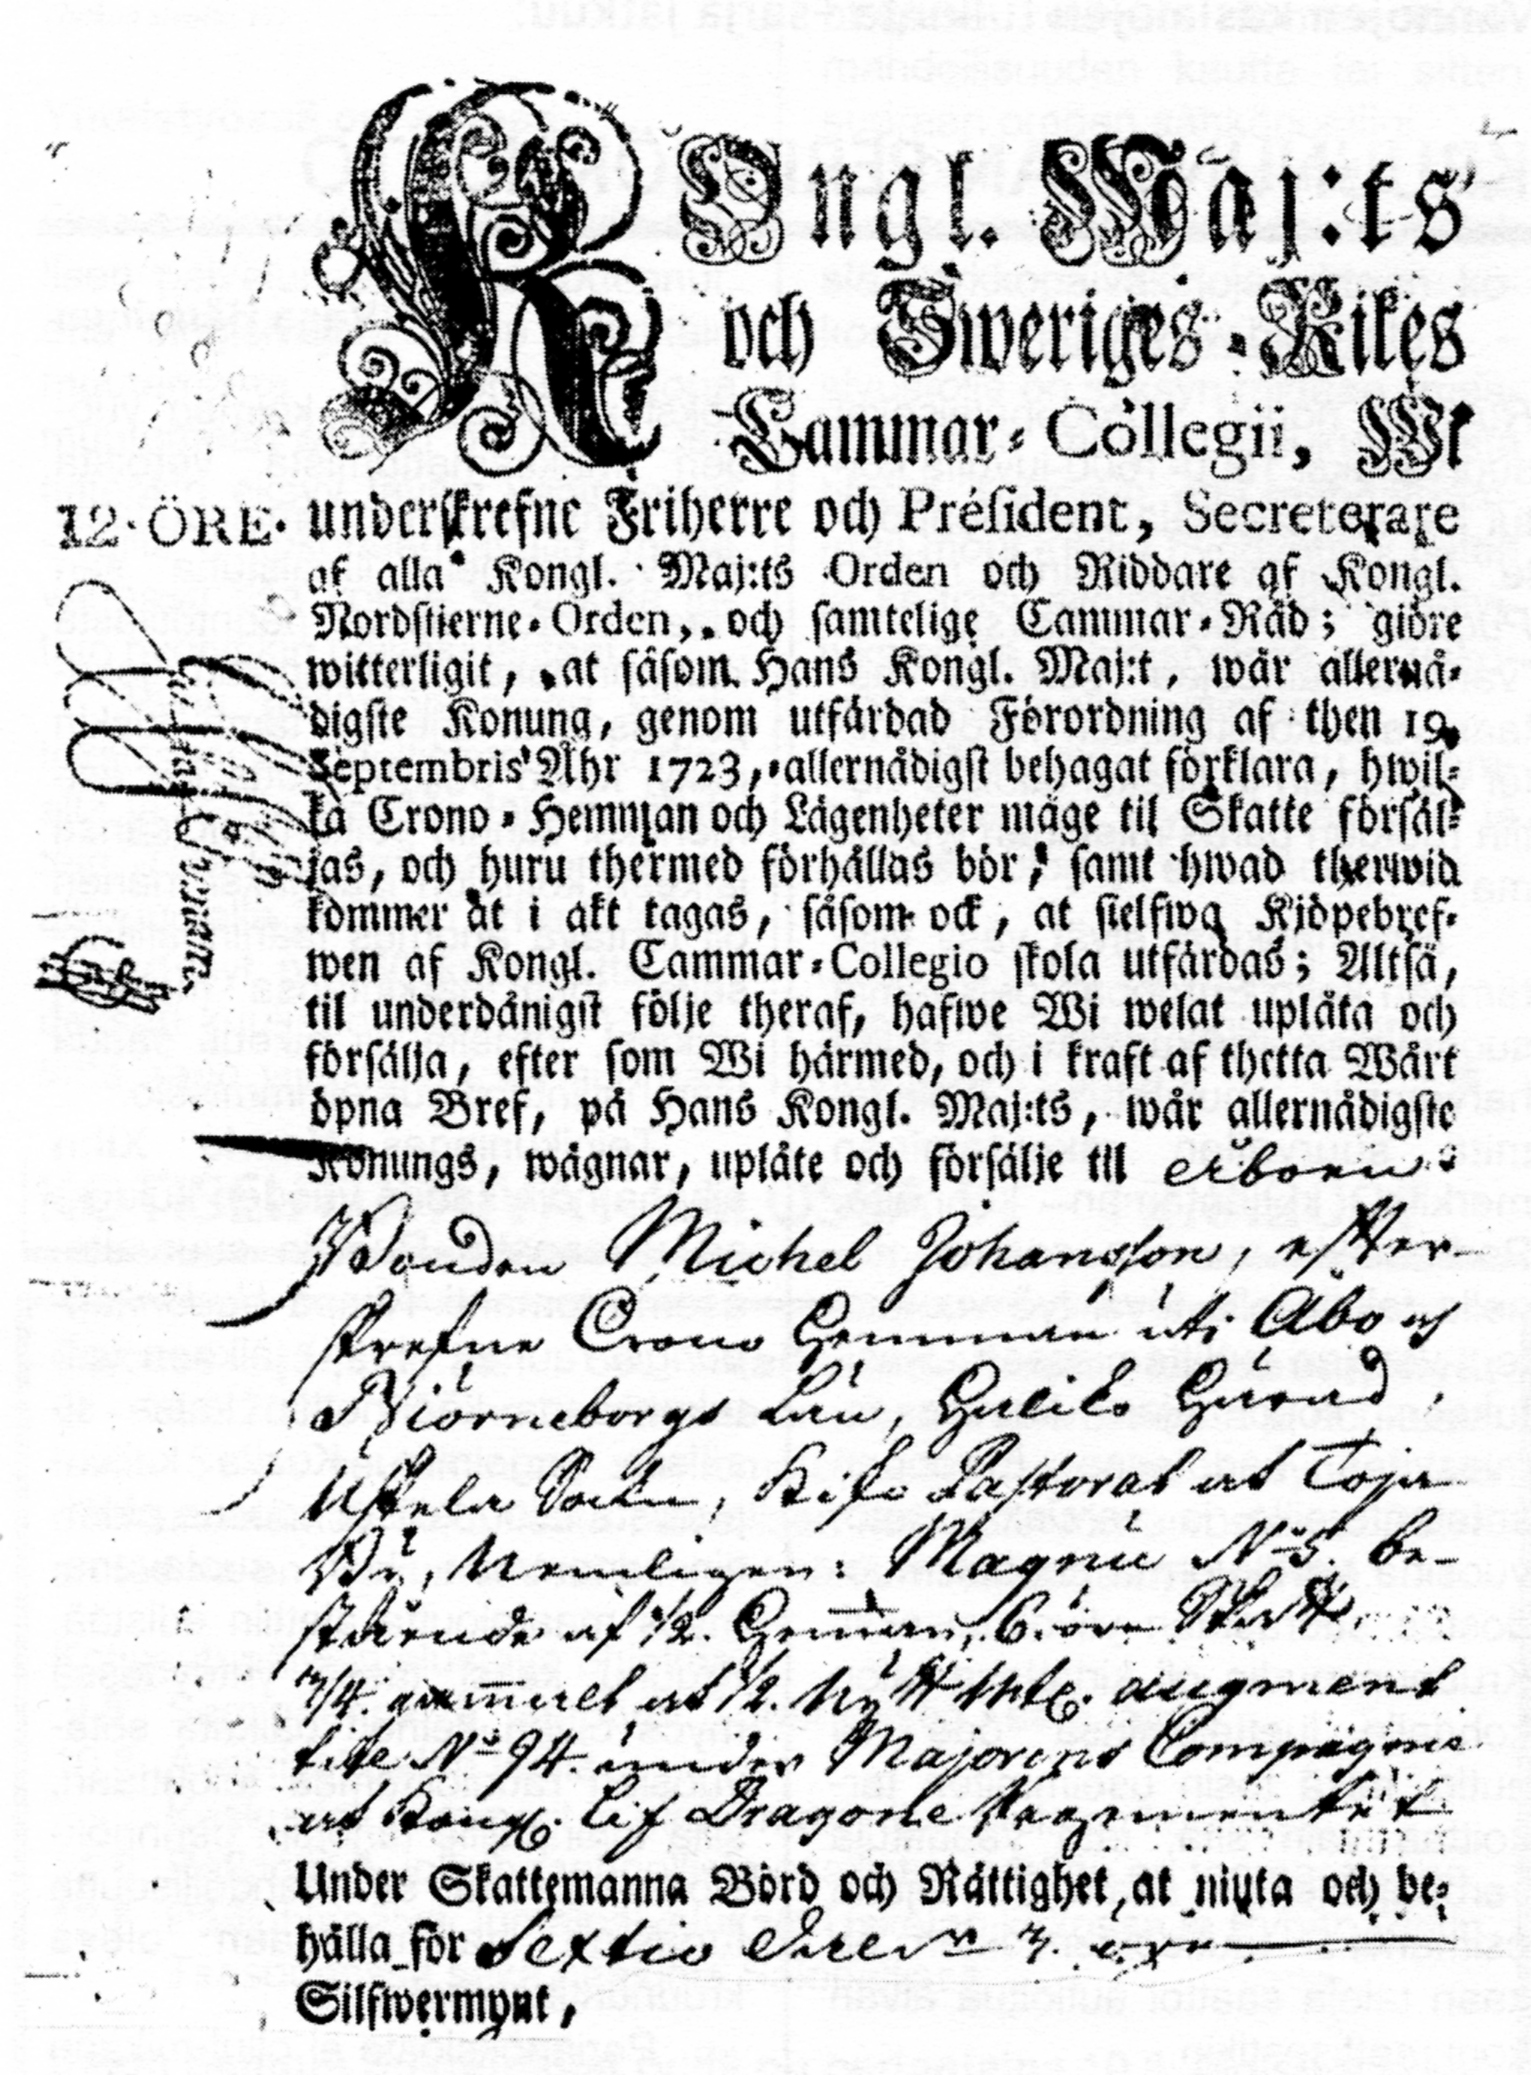 KOngl. Maj:ts
och Sweriges-Rikes
Cammar-Collegii, Wi
12 ÖRE. underskrefne Friherre och Præsident, Secreterare
af alla Kongl. Maj:ts Orden och Riddare af Kongl.
Nordstierne-Orden, och samtelige Cammar-Råd; giöre
witterligit, at såsom Hans Kongl. Maj:t, wår allernå-
digste Konung, genom utfärdad Förordning af then 19.
Septembris Åhr 1723, allernådigst behagat förklara, hwil-
ka Crono-Hemman och Lägenheter måge til Skatte försäl-
jas, och huru thermed förhållas bör, samt hwad therwid
kommer at i akt tagas, såsom ock, at sielfwa Kjöpebref-
wen af Kongl. Cammar-Collegio skola utfärdas; Altså,
til underdånigst följe theraf, hafwe Wi welat uplåta och
försälja, efter som Wi härmed, och i kraft af thetta Wårt
öpna Bref, på Hans Kongl. Maj:ts, wår allernådigste
Konungs, wägnar, uplåte och försälje til Åboen
Bonden Michel Johansson, efter-
skrefne Crono Hemman uti Åbo och
Biörneborgs Län, Haliko Härad,
Uskela Sockn, Pastorat at Toja
By, Nemligen: N:o 5. be-
stående af 1/2. Heman, 6. öre Skatt,
gammalt at 1/2. Nÿtt Mtl. augment
N:o 94. under Majorens Compagnie
at Kongl. Lif Dragone Regementet
Under Skattemanna Börd och Rättighet, at niuta och be-
hålla för Sextio 7. öre
Silfwermynt,